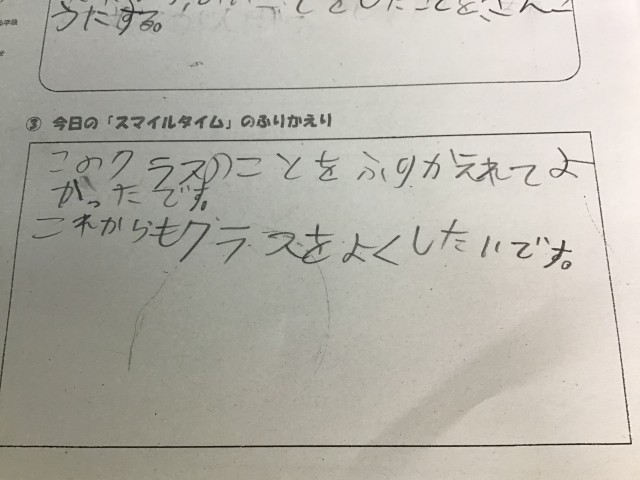 うたする。
③ 今日の「スマイルタイム」のふりかえり
このクラスのことをふりかえれてよ
かったです。
これからもクラスをよくしたいです。